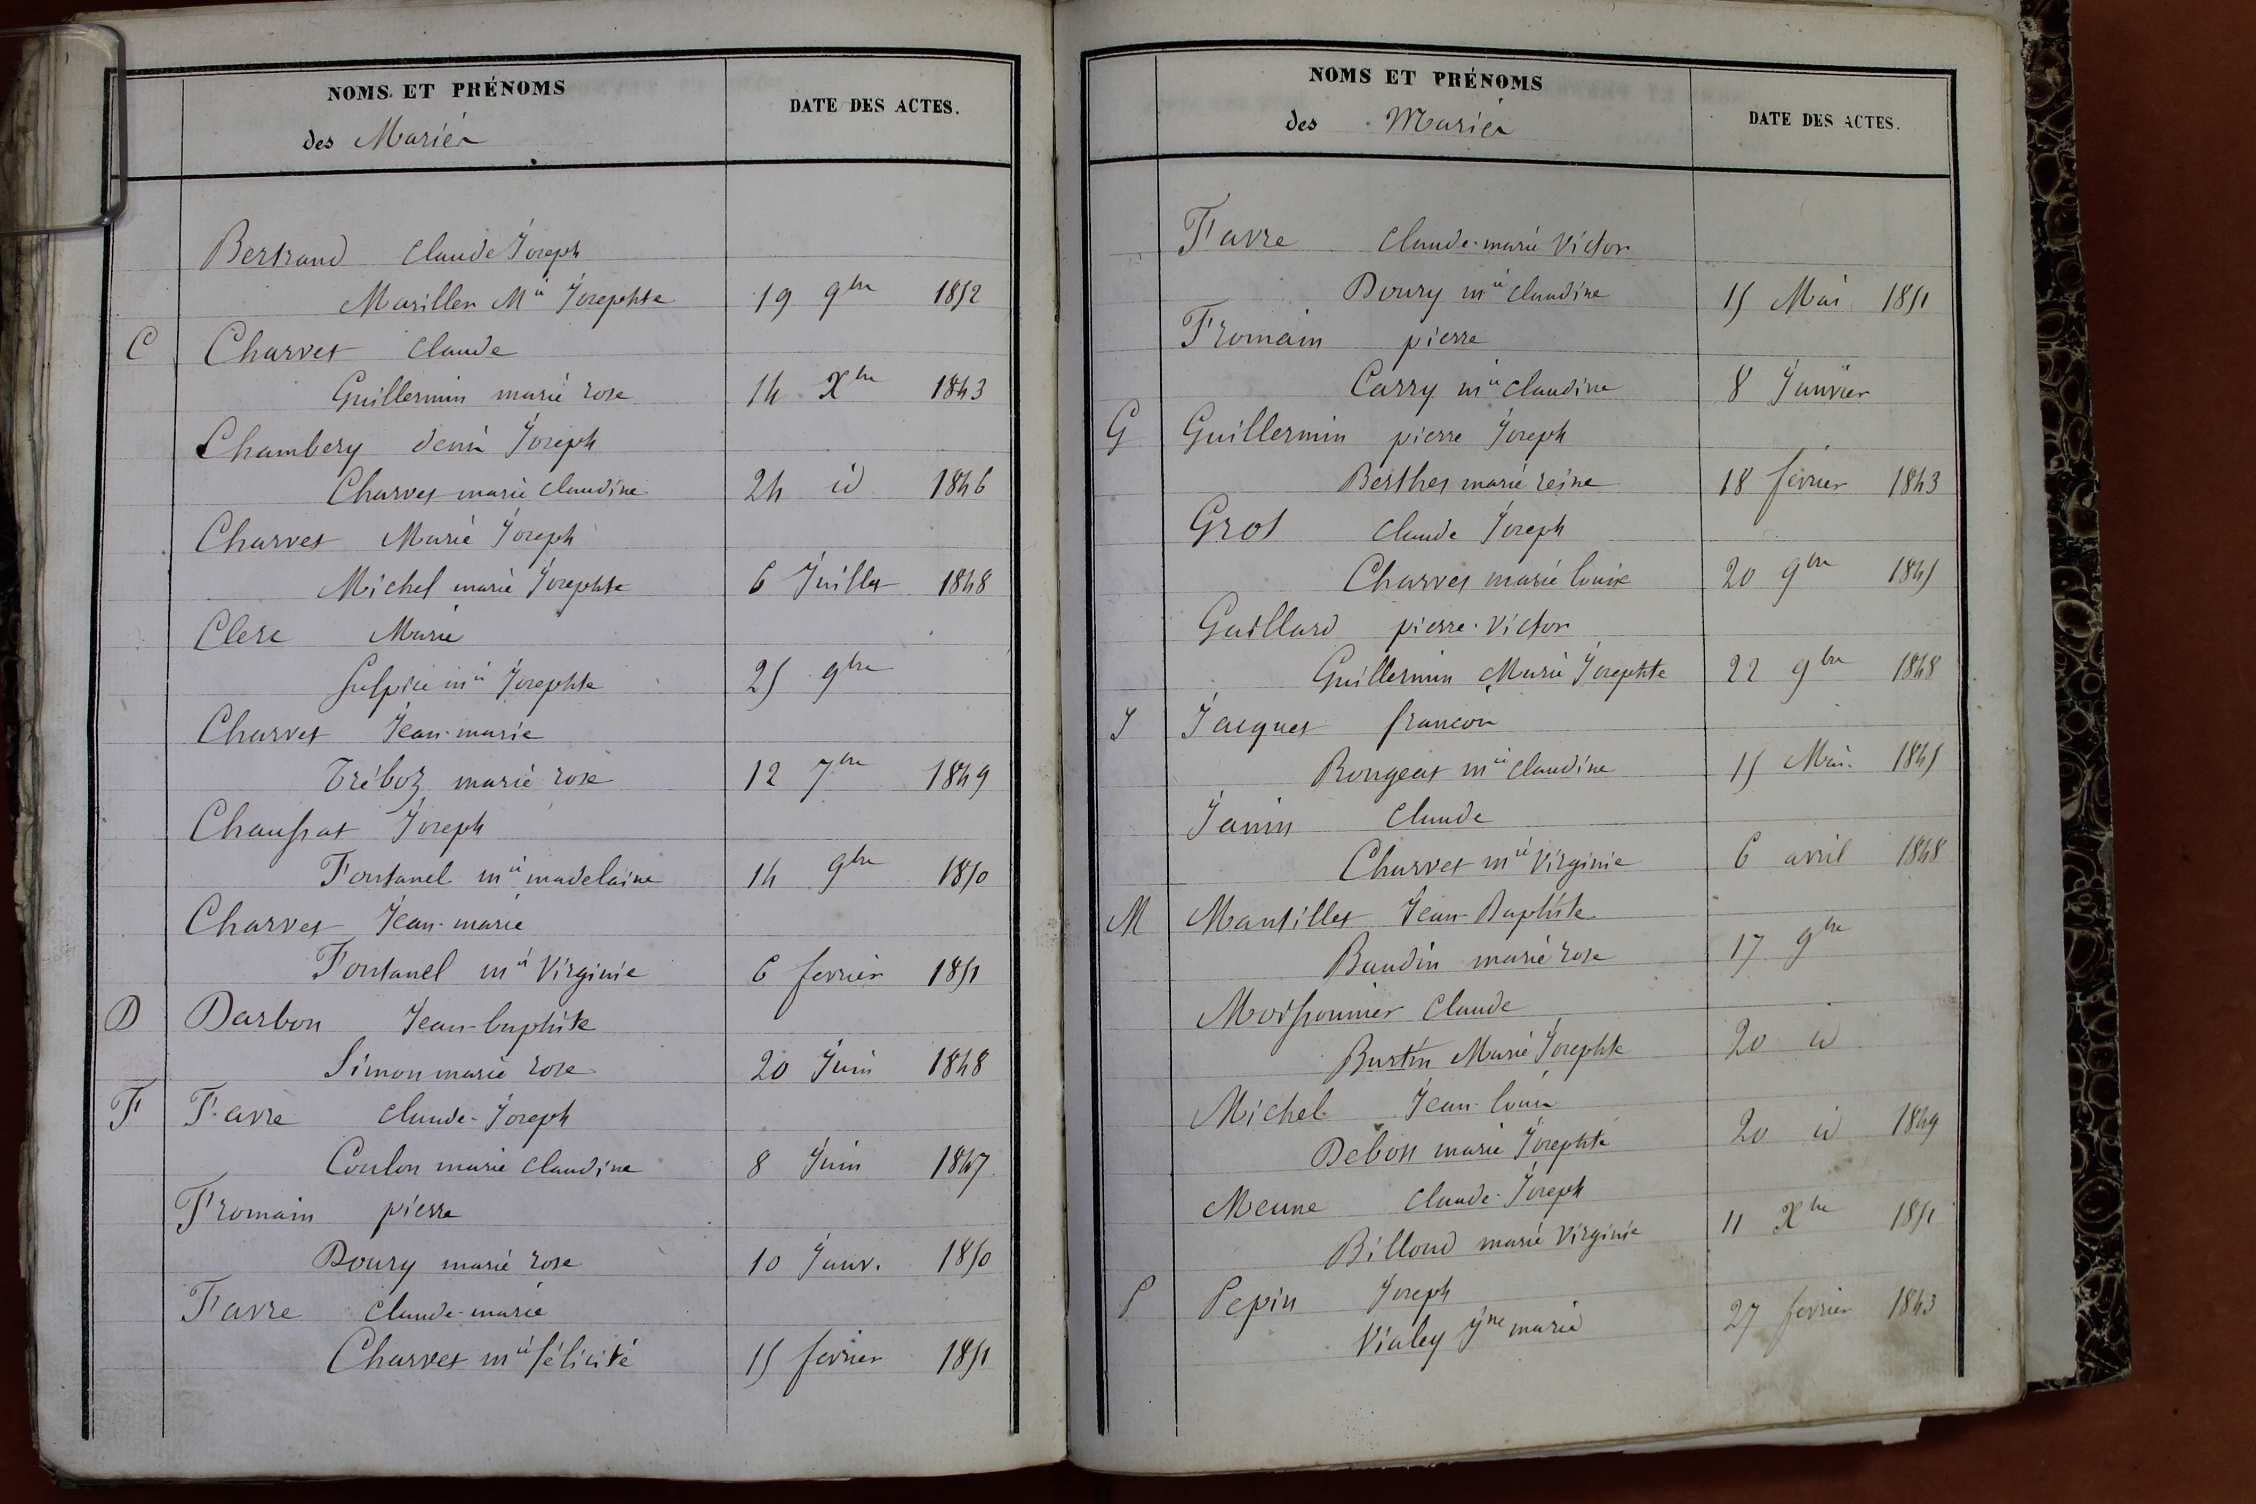 NOMS ET PRÉNOMS
des Mariés
DATE DES ACTES.
Bertrand Claude Joseph
Mariller Mie Josephte 19 9bre 1852
C Charvet Claude
Guillermin marie rose 14 Xbre 1843
Chambery denis Joseph
Charvet marie claudine 24 id 1846
Charvet Marie Joseph
Michel marie Josephte 6 Juillet 1848
Clerc Marie
Sulpice mie Josephte 25 9bre
Charvet Jean-marie
Tréboz marie rose 12 7bre 1849
Chaussat Joseph
Fontanel mie madelaine 14 9bre 1850
Charvet Jean-marie
Fontanel mie Virginie 6 fevrier 1851
D Darbon Jean-baptiste
Simon marie rose 20 Juin 1848
F Favre Claude-Joseph
Coulon marie claudine 8 Juin 1847
Fromain pierre
Doury marie rose 10 Janv. 1850
Favre Claude-marie
Charvet mie félicité 15 fevrier 1851
NOMS ET PRÉNOMS
des Mariés
DATE DES ACTES.
Favre Claude-marie Victor
Doury mie claudine 15 Mai 1851
Fromain pierre
Carry mie claudine 8 Janvier
G Guillermin pierre Joseph
Berthet marie reine 18 février 1843
Gros Claude Joseph
Charvet marie louise 20 9bre 1845
Gaillard pierre-Victor
Guillermin Marie Josephte 22 9bre 1848
J Jacques francois
Rongeat mie claudine 15 Mai. 1845
Janin Claude
Charvet mie Virginie 6 avril 1848
M Mantillet Jean-Baptiste
Baudin marie rose 17 9bre
Moissonnier Claude
Burtin Marie Josephte 20 id
Michel Jean-louis
Debost marie Josephte 20 id 1849
Meune Claude-Joseph
Billoud marie Virginie 11 Xbre 1851
P Pepin Joseph
Vialey jne marie 27 fevrier 1843